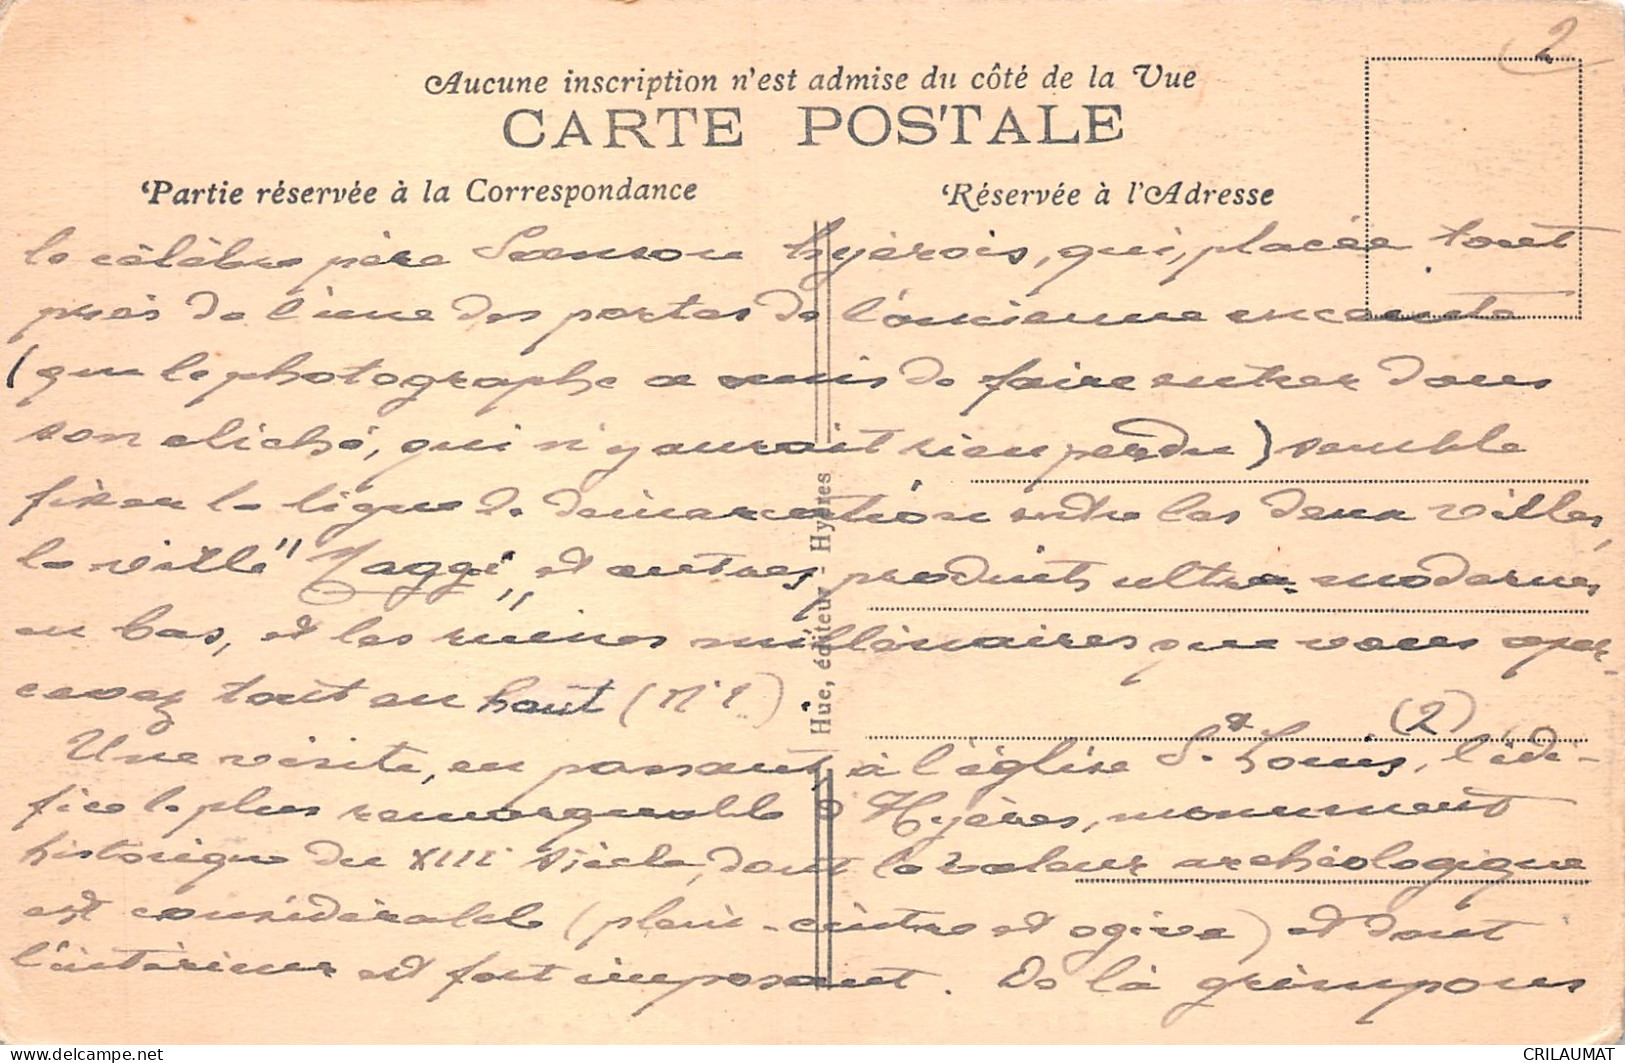 2
Aucune inscription n'est admise du côté de la Vue
CARTE POSTALE
Partie réservée à la Correspondance
Réservée à l'Adresse
le célèbre père Sanson hyèrois, qui, placée tout
près de l'une des portes de l'ancienne enceinte
(que le photographe a omis de faire entrer dans
son cliché, qui n'y aurait rien perdu) semble
fixer la ligne de démarcation entre les deux villes,
la ville "Maggi" et autres produits ultra-modernes
en bas, et les ruines millénaires que vous aper-
cevez tout en haut (N°1).
(2)
Une visite, en passant, à l'église St Louis, l'édi-
fice le plus remarquable d'Hyères, monument
historique du XIIIe siècle, dont la valeur archéologique
est considérable (plein-cintre et ogive) et dont
l'intérieur est fort imposant. De là grimpons
Hue, éditeur, Hyères
CRILAUMAT